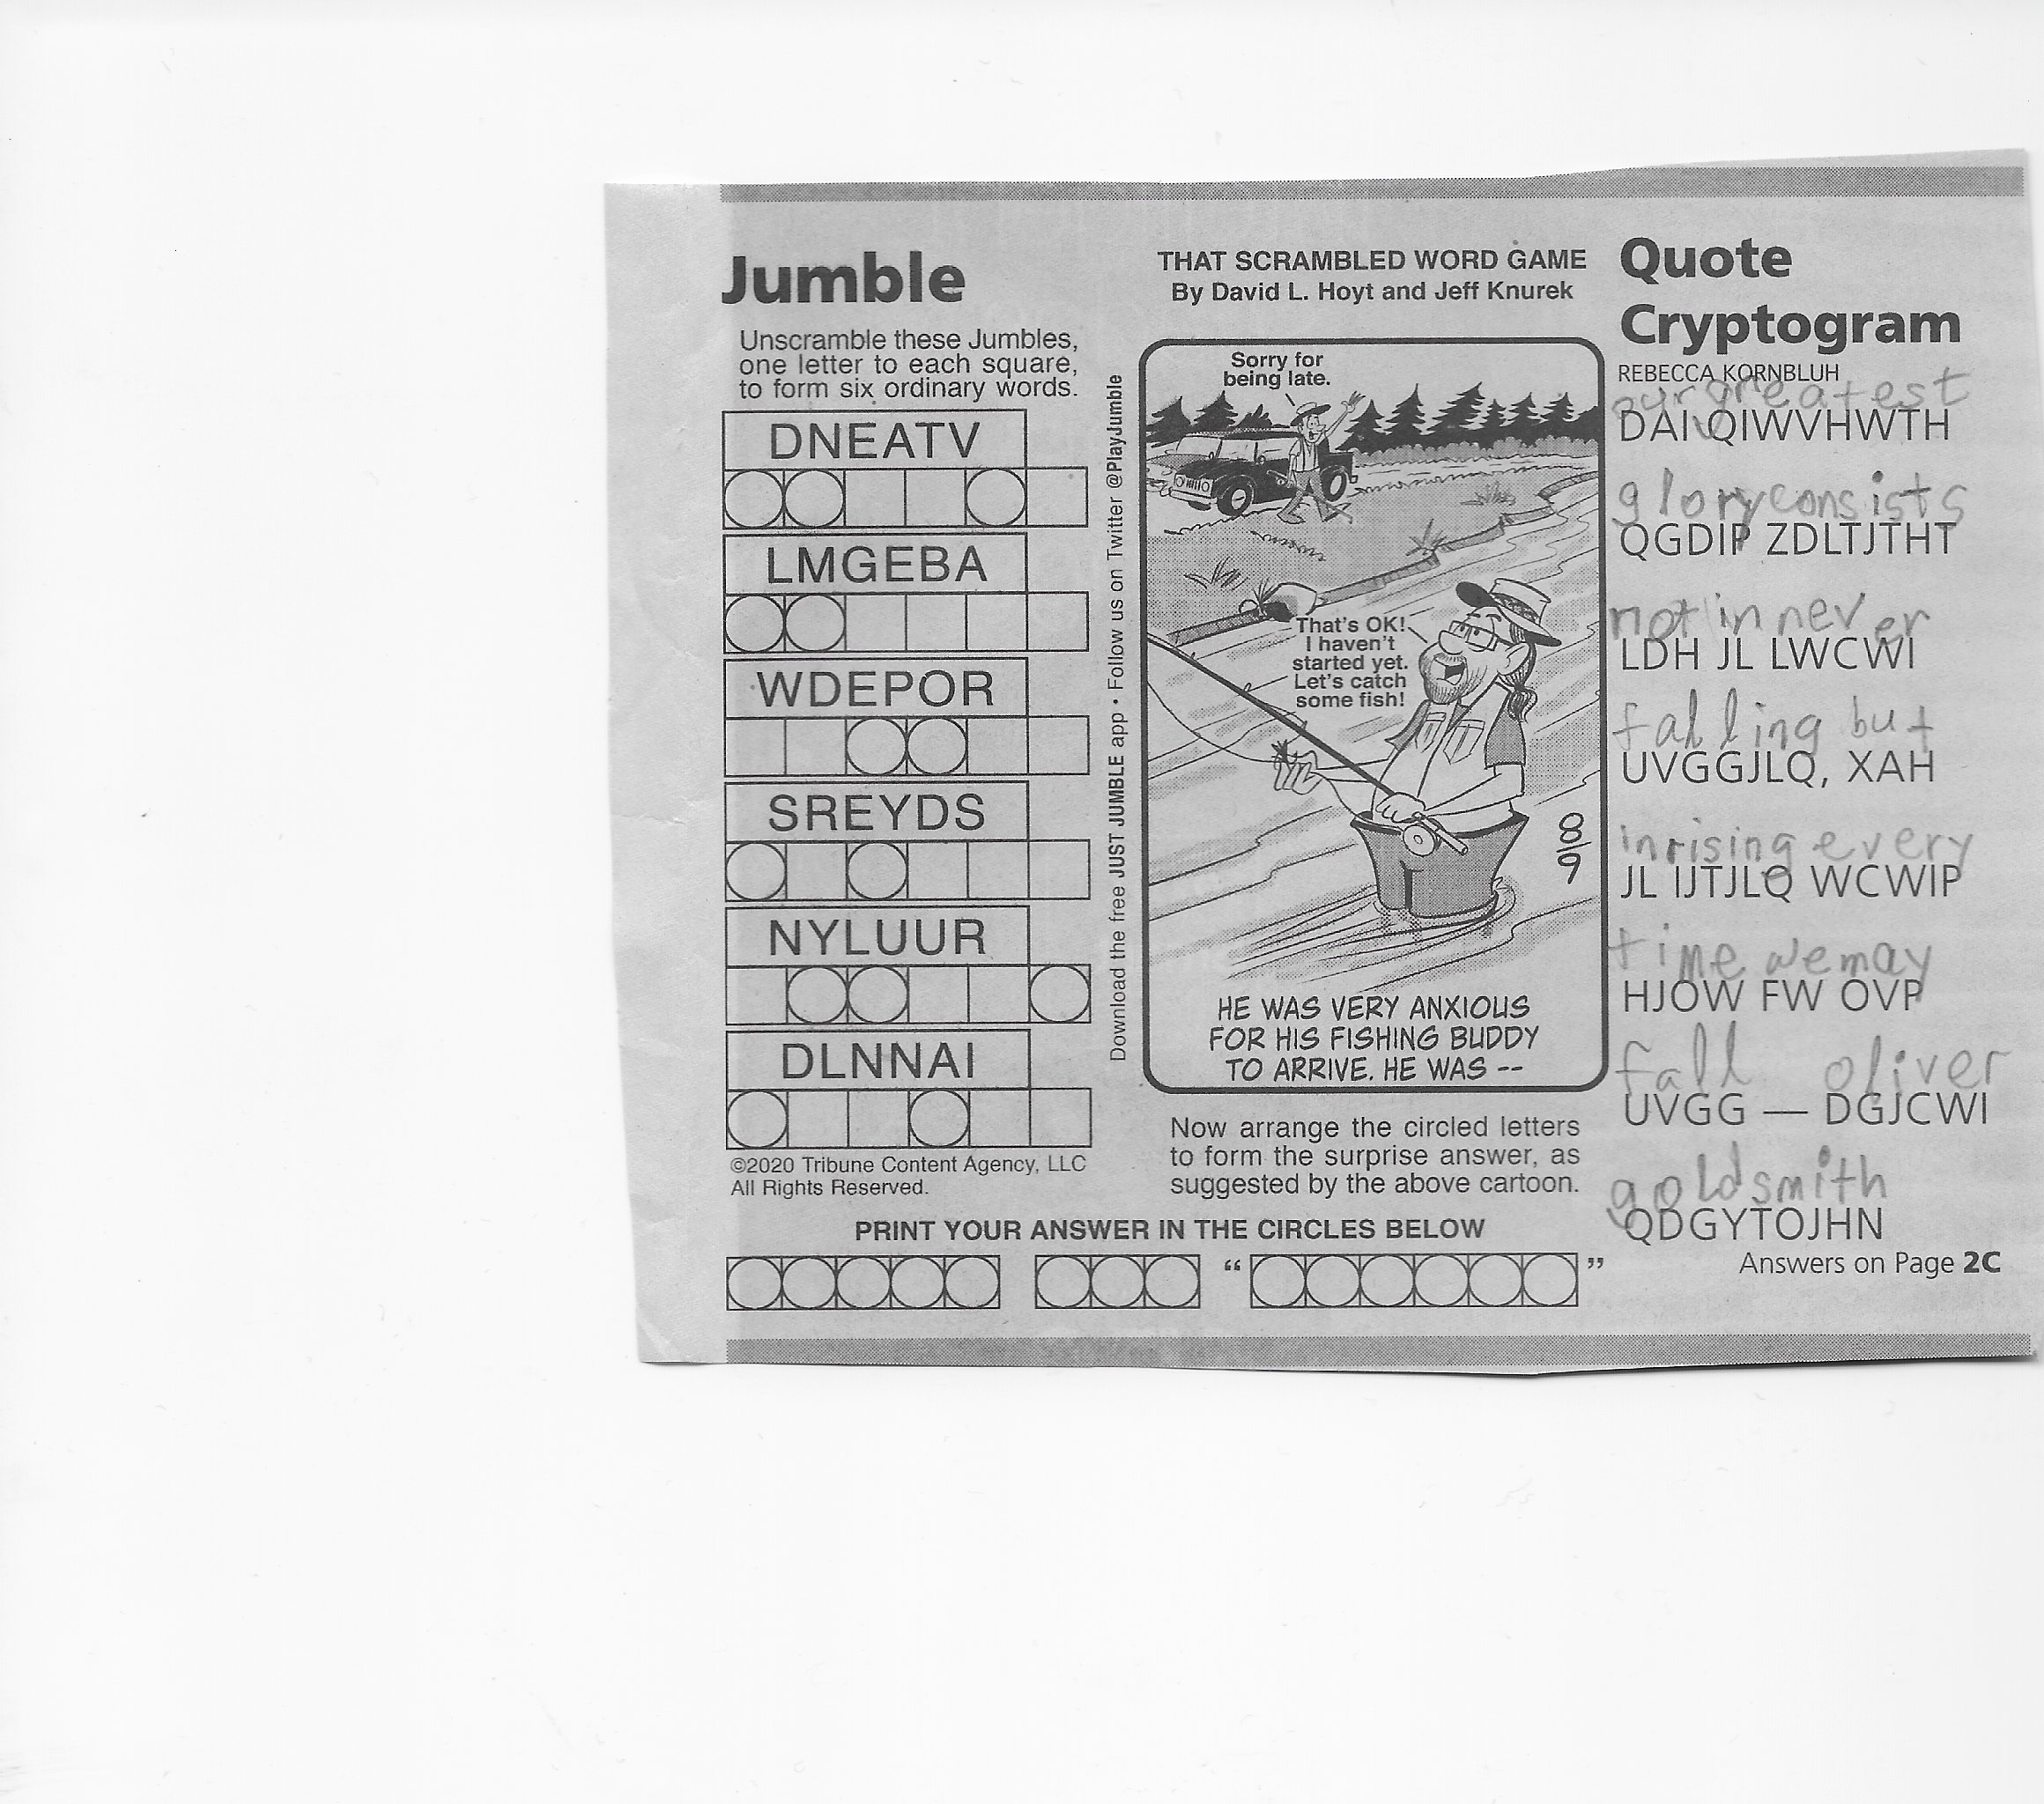 Jumble
THAT SCRAMBLED WORD GAME
By David L. Hoyt and Jeff Knurek
Unscramble these Jumbles,
one letter to each square,
to form six ordinary words.
DNEATV
LMGEBA
WDEPOR
SREYDS
NYLUUR
DLNNAI
©2020 Tribune Content Agency, LLC
All Rights Reserved.
Download the free JUST JUMBLE app • Follow us on Twitter @PlayJumble
Sorry for
being late.
That's OK!
I haven't
started yet.
Let's catch
some fish!
8/9
HE WAS VERY ANXIOUS
FOR HIS FISHING BUDDY
TO ARRIVE. HE WAS --
Now arrange the circled letters
to form the surprise answer, as
suggested by the above cartoon.
PRINT YOUR ANSWER IN THE CIRCLES BELOW
“ ”
Quote
Cryptogram
REBECCA KORNBLUH
our greatest
DAI QIWVHWTH
glory consists
QGDIP ZDLTJTHT
not in never
LDH JL LWCWI
falling but
UVGGJLQ, XAH
in rising every
JL IJTJLQ WCWIP
time we may
HJOW FW OVP
fall oliver
UVGG — DGJCWI
goldsmith
QDGYTOJHN
Answers on Page 2C